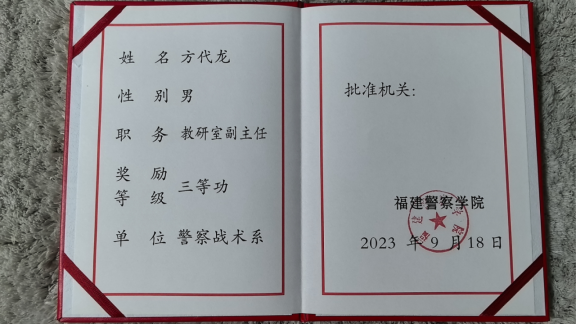 姓 名 方代龙
性 别 男
职 务 教研室副主任
奖 励
等 级 三等功
单 位 警察战术系
批准机关:
福建警察学院
2023 年 9 月 18 日